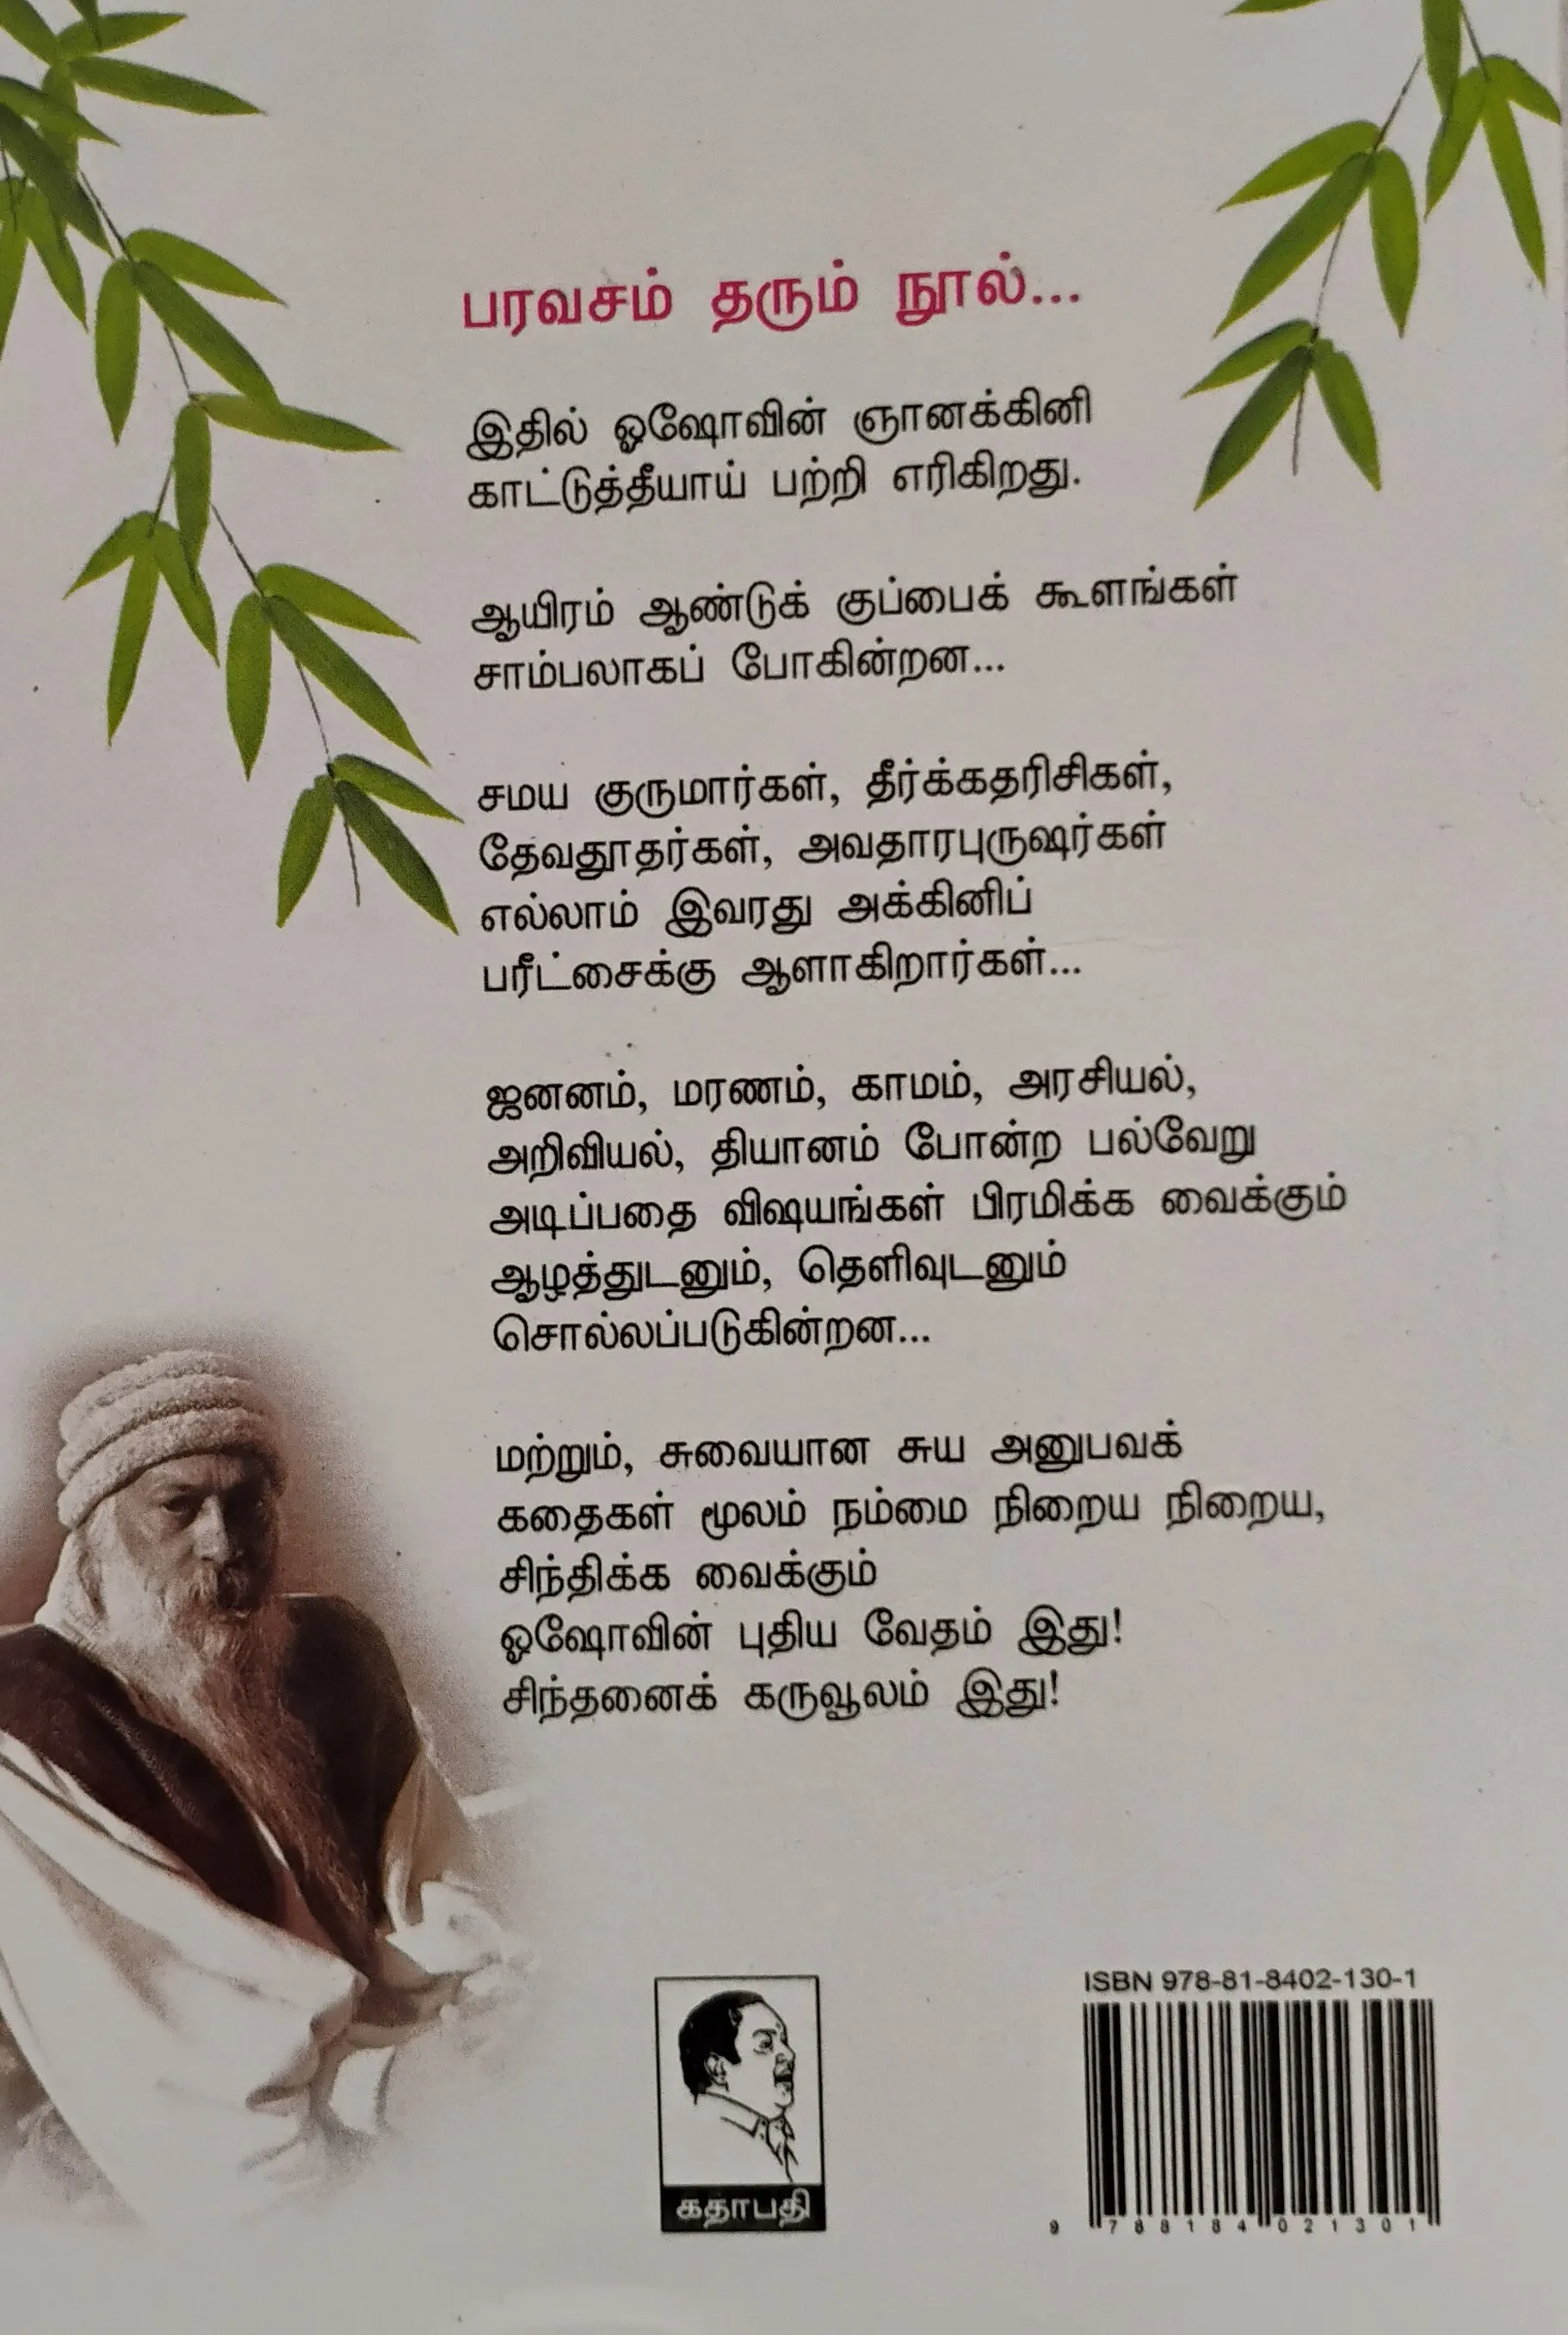 பரவசம் தரும் நூல்...
இதில் ஓஷோவின் ஞானக்கினி
காட்டுத்தீயாய் பற்றி எரிகிறது.
ஆயிரம் ஆண்டுக் குப்பைக் கூளங்கள்
சாம்பலாகப் போகின்றன...
சமய குருமார்கள், தீர்க்கதரிசிகள்,
தேவதூதர்கள், அவதாரபுருஷர்கள்
எல்லாம் இவரது அக்கினிப்
பரீட்சைக்கு ஆளாகிறார்கள்...
ஜனனம், மரணம், காமம், அரசியல்,
அறிவியல், தியானம் போன்ற பல்வேறு
அடிப்பதை விஷயங்கள் பிரமிக்க வைக்கும்
ஆழத்துடனும், தெளிவுடனும்
சொல்லப்படுகின்றன...
மற்றும், சுவையான சுய அனுபவக்
கதைகள் மூலம் நம்மை நிறைய நிறைய,
சிந்திக்க வைக்கும்
ஓஷோவின் புதிய வேதம் இது!
சிந்தனைக் கருவூலம் இது!
கதாபதி
ISBN 978-81-8402-130-1
9 788184 021301